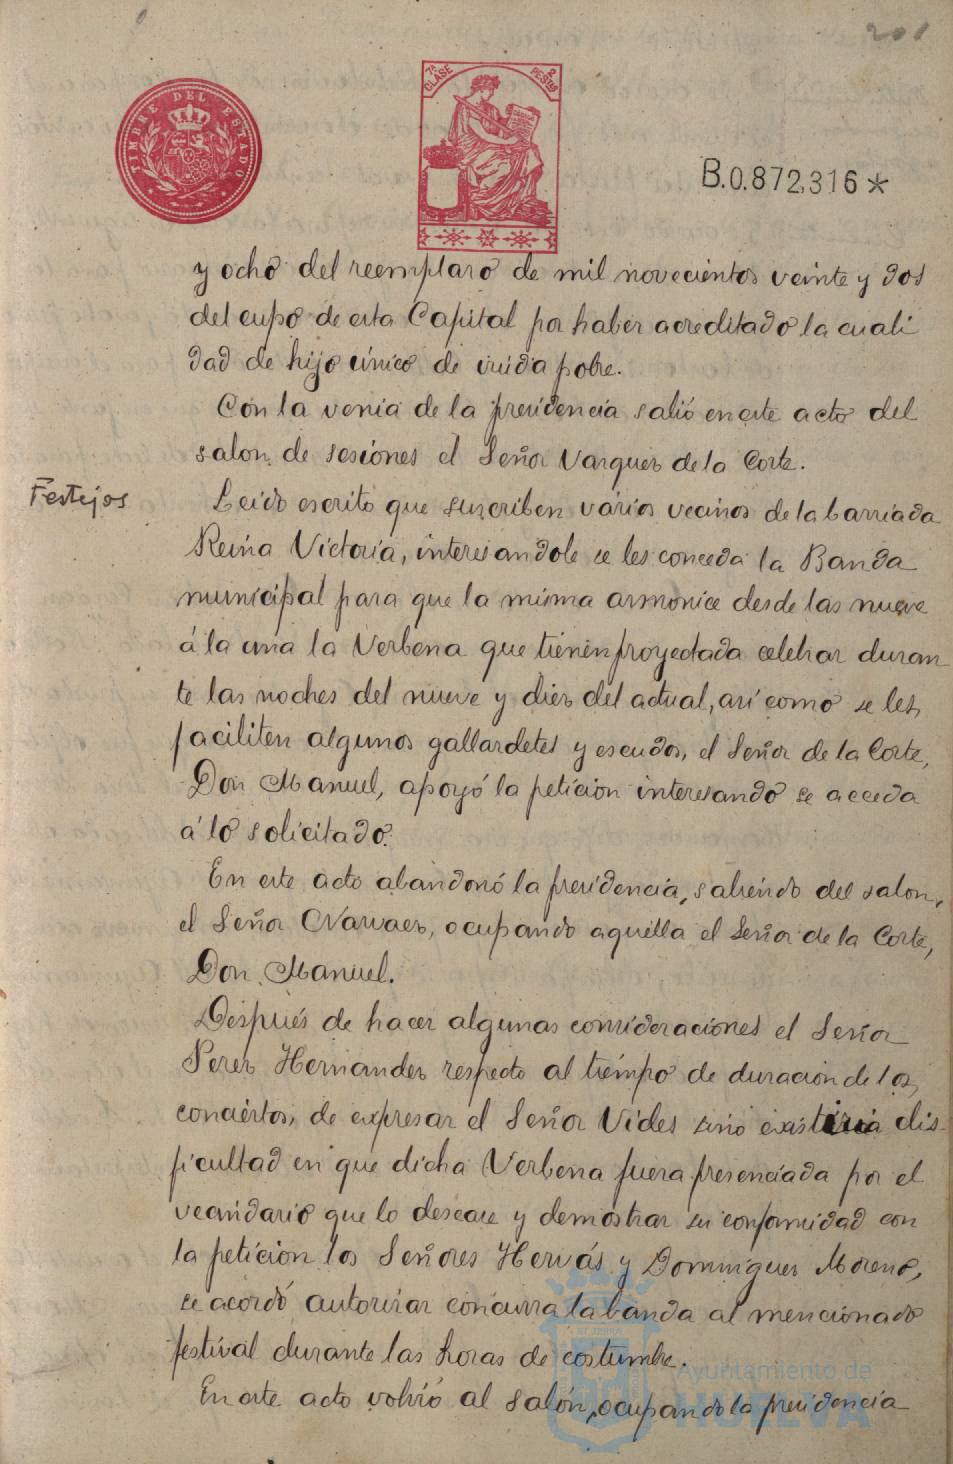 201
TIMBRE DEL ESTADO
7ª CLASE
2 PESTAS
B.0.872,316*
y ocho del reemplazo de mil novecientos veinte y dos
del cupo de esta Capital por haber acreditado la cuali
dad de hijo único de viuda pobre.
Con la venia de la presidencia salió en este acto del
salon de sesiones el Señor Vazquez de la Corte.
Festejos
Leido escrito que suscriben varios vecinos de la barriada
Reina Victoria, interesandole se les conceda la Banda
municipal para que la misma armonice desde las nueve
á la una la Verbena que tienen proyectada celebrar duran
te las noches del nueve y diez del actual, así como se les
faciliten algunos gallardetes y escudos, el Señor de la Corte,
Don Manuel, apoyó la peticion interesando se acceda
á lo solicitado.
En este acto abandonó la presidencia, saliendo del salon,
el Señor Narvaez, ocupando aquella el Señor de la Corte,
Don Manuel.
Después de hacer algunas consideraciones el Señor
Perez Hernandez respecto al tiempo de duracion de los
conciertos, de expresar el Señor Vides sino existiria dis-
ficultad en que dicha Verbena fuera presenciada por el
vecindario que lo deseare y demostrar su conformidad con
la peticion los Señores Hervás y Dominguez Moreno,
se acordó autorizar concurra la banda al mencionado
festival durante las horas de costumbre.
En este acto volvió al salón, ocupando la presidencia
Ayuntamiento de
HUELVA